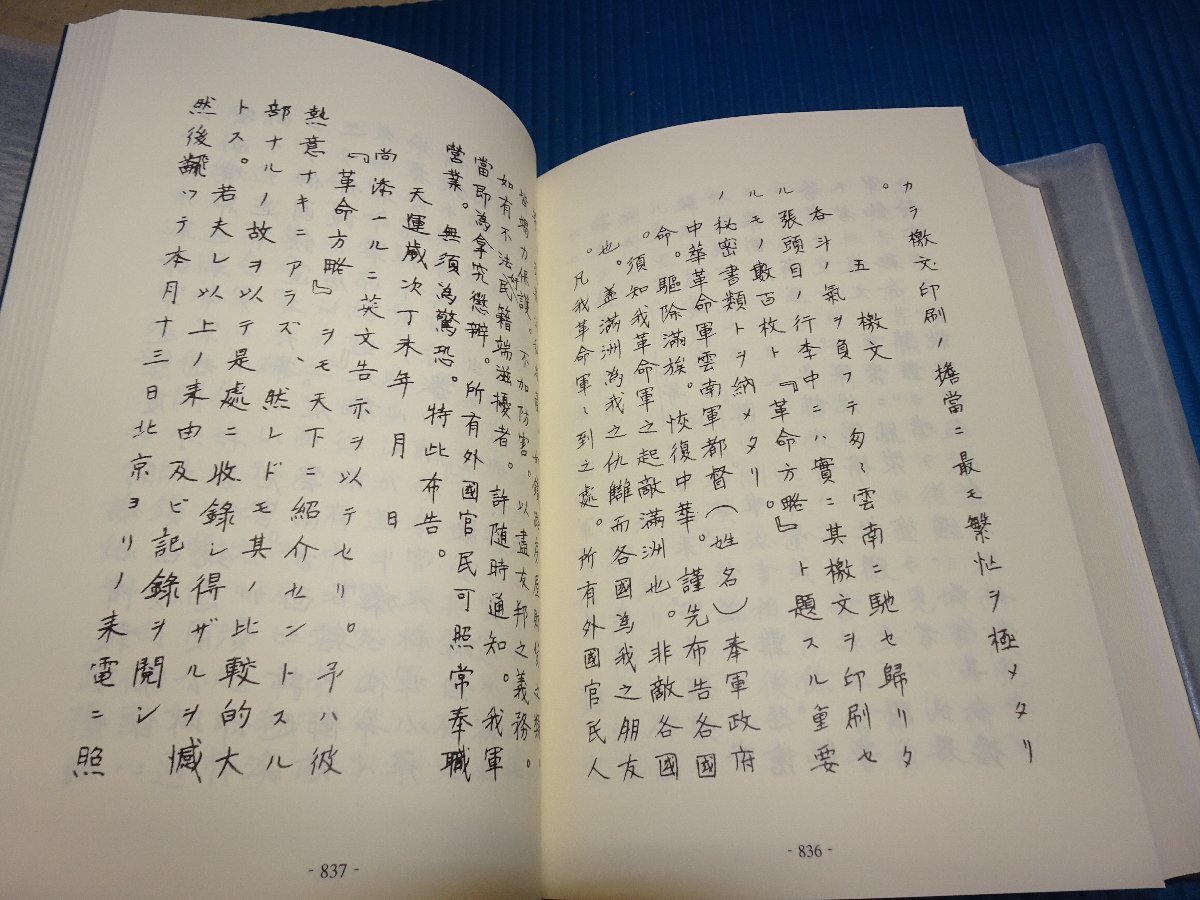 カラ檄文印刷ノ擔當ニ最モ繁忙ヲ極メタリ
。　　五　檄文
呑斗ノ氣ヲ負フテ匆々雲南ニ馳セ歸リタ
ル張頭目ノ行李中ニハ實ニ其檄文ヲ印刷セ
ルモノ數百枚ト『革命方略』ト題スル重要
ノ秘密書類トヲ納メタリ。
中華革命軍雲南軍都督(姓名)奉軍政府
命。驅除滿族。恢復中華。謹先布告各國
。須知我革命軍之起敵滿洲也。非敵各國
也。蓋滿洲為我之仇雠而各國為我之朋友
。凡我革命軍々到之處。所有外國官民人
- 836 -
皆竭力保護。不加防害。以盡友邦之義務。
如有不法奸民籍端滋擾者。許随時通知。我軍
當即為拿究懲辦。所有外國官民可照常奉職
營業。無須為驚恐。特此布告。
天運歲次丁未年　月　日
尚添ールニ英文告示ヲ以テセリ。予ハ彼
『革命方略』ヲモ天下ニ紹介セントスル
熱意ナキニアラズ、然レドモ其ノ比較的大
部ナルノ故ヲ以テ是處ニ收錄シ得ザルヲ憾
トス。若夫レ以上ノ来由及ビ記錄ヲ閲シ
然後飜ツテ本月十三日北京ヨリノ来電ニ照
- 837 -